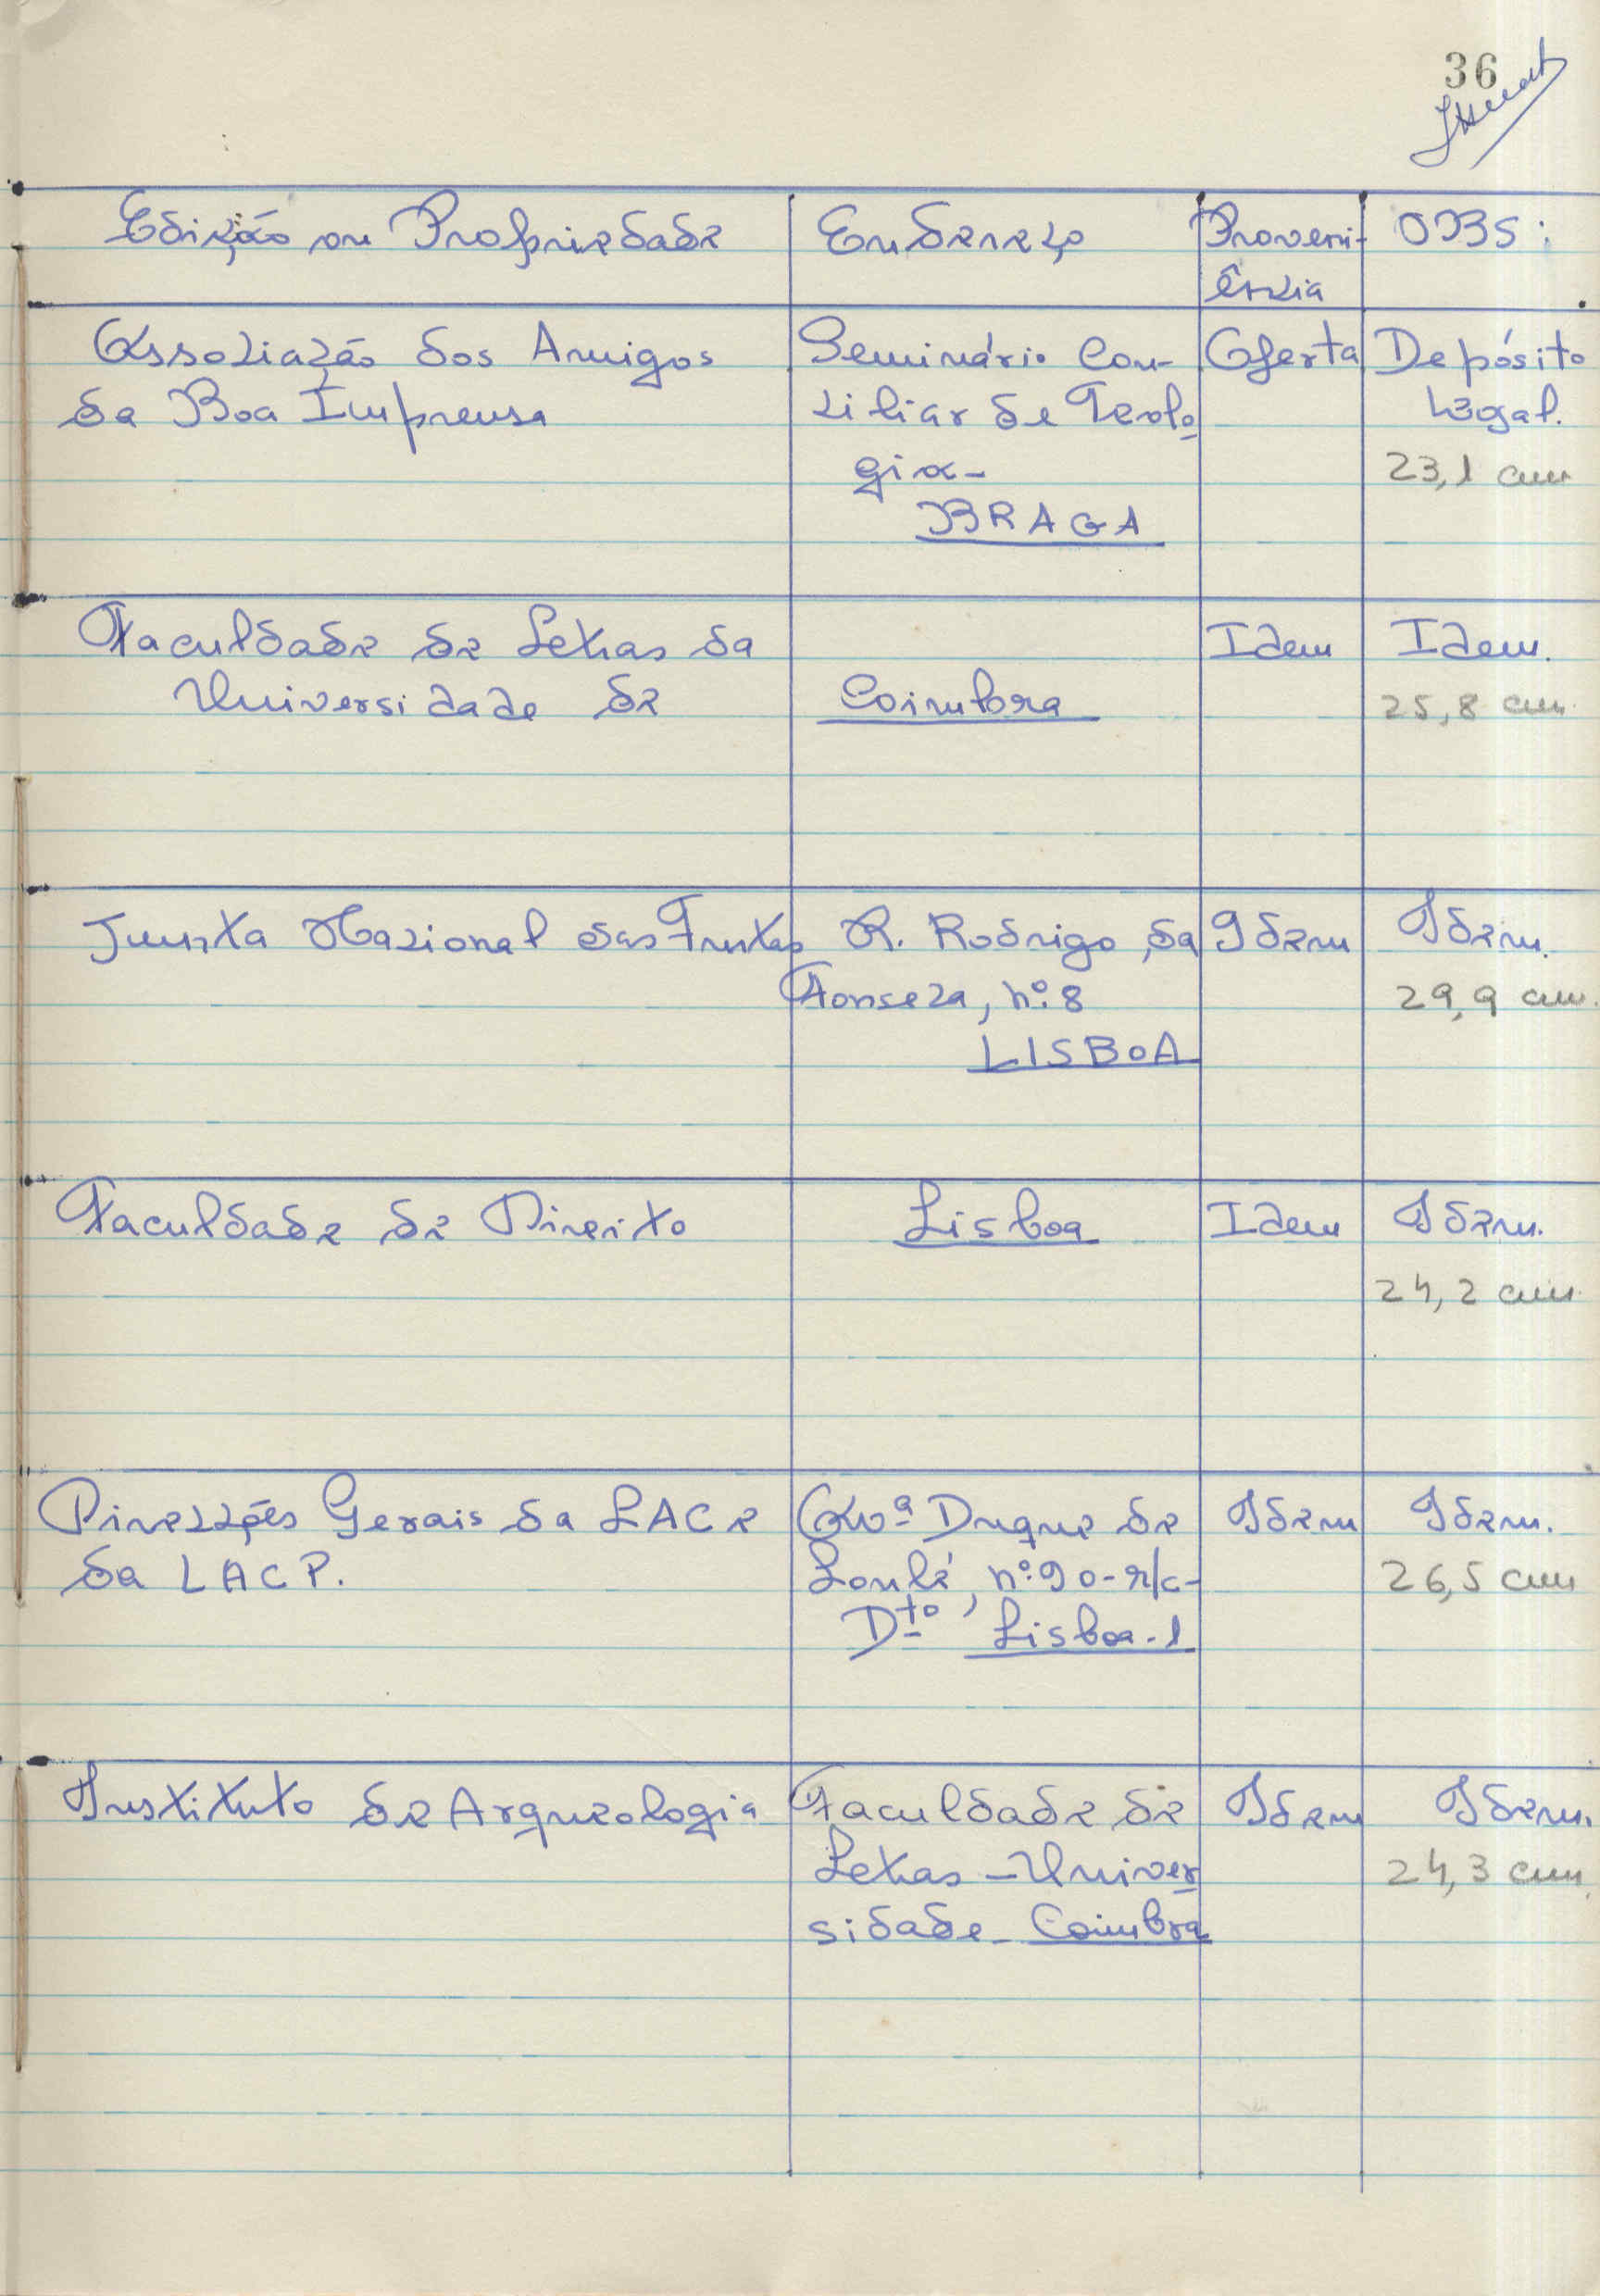 36
Edição ou Propriedade
Endereço
Proveni-
ência
OBS:
Associação dos Amigos
da Boa Imprensa
Seminário Con-
ciliar de Teolo
gia-
BRAGA
Oferta
Depósito
Legal.
23,1 cm
Faculdade de Letras da
Universidade de
Coimbra
Idem
Idem.
25,8 cm
Junta Nacional das Frutas
R. Rodrigo da
Fonseca, nº 8
LISBOA
Idem
Idem.
29,9 cm.
Faculdade de Direito
Lisboa
Idem
Idem.
24,2 cm.
Direcções Gerais da LAC e
da LACP.
Avª Duque de
Loulé, nº 90-r/c-
Dtº, Lisboa-1
Idem
Idem.
26,5 cm
Instituto de Arqueologia
Faculdade de
Letras - Univer
sidade - Coimbra
Idem
Idem.
24,3 cm.